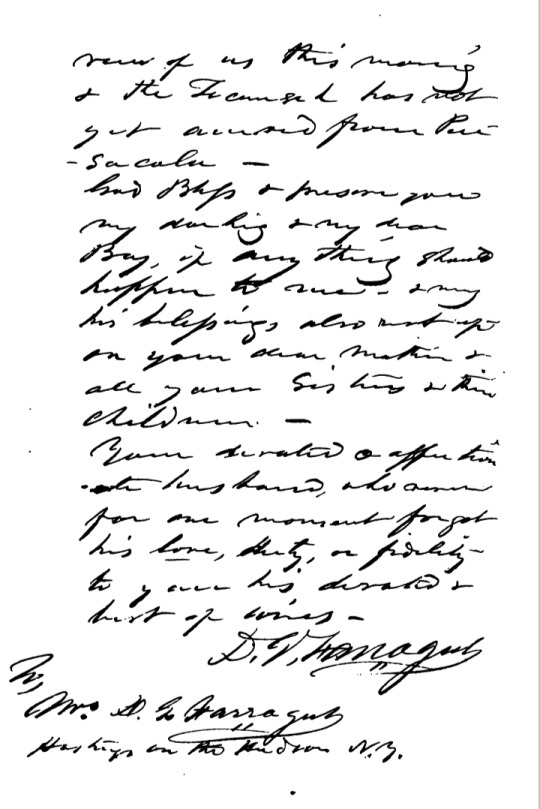 view of us this morning
& the Tecumseh has not
yet arrived from Pen
- sacola —
God Bless & preserve you
my darling & my dear
Boy, if anything should
happen to me - & may
his blessings also rest up
on your dear Mother &
all your Sisters & their
children. —
Your devoted & affection
ate husband, who never
for one moment forgot
his love, duty, or fidelity
to you his devoted &
best of wives —
D. G. Farragut
To,
Mrs. D. G. Farragut
Hastings on the Hudson N.Y.